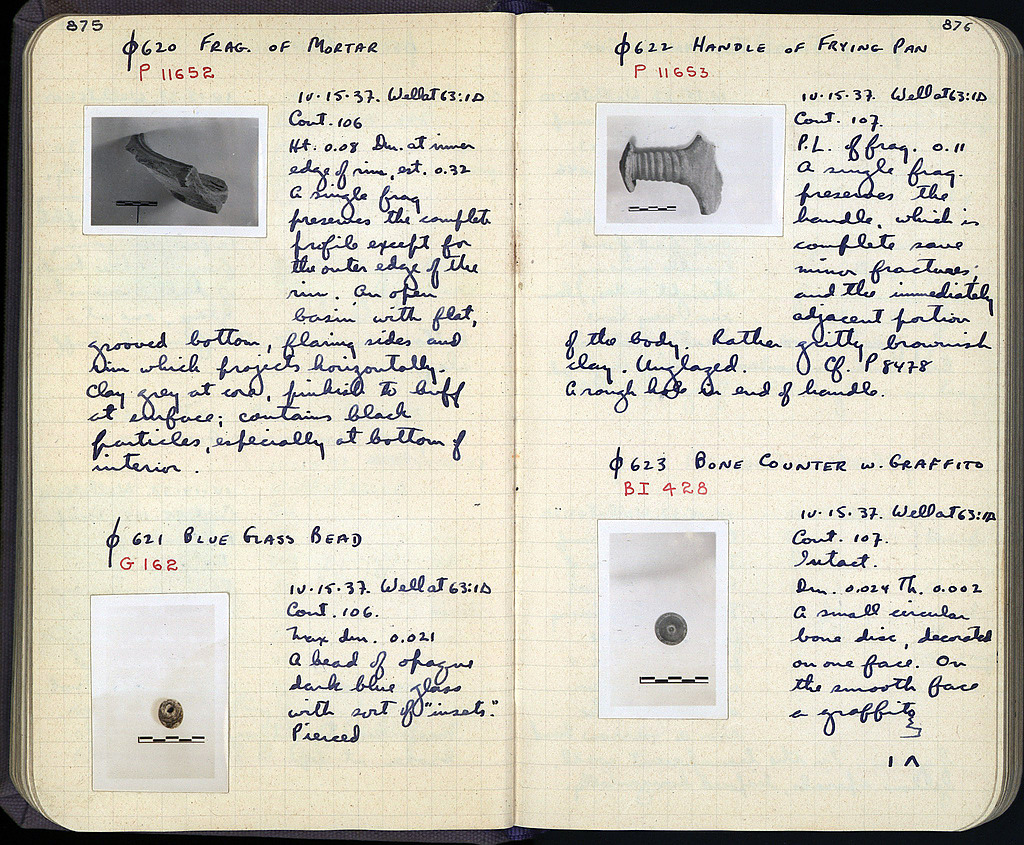 875
ϕ620 FRAG. OF MORTAR
P 11652
IV.15.37. Well at 63:ΙΔ
Cont. 106
Ht. 0.08 Dm. at inner
edge of rim, est. 0.32
A single frag
preserves the complete
profile except for
the outer edge of the
rim. An open
basin with flat,
grooved bottom, flaring sides and
rim which projects horizontally.
Clay grey at core, pinkish to buff
at surface; contains black
particles, especially at bottom of
interior.
ϕ621 BLUE GLASS BEAD
G 162
IV.15.37. Well at 63:ΙΔ
Cont. 106.
Max dm. 0.021
A bead of opaque
dark blue glass
with sort of "insets."
Pierced
876
ϕ622 HANDLE OF FRYING PAN
P 11653
IV.15.37. Well at 63:ΙΔ
Cont. 107.
P.L. of frag. 0.11
A single frag.
preserves the
handle, which is
complete save
minor fractures;
and the immediately
adjacent portion
of the body. Rather gritty brownish
clay. Unglazed. Cf. P 8478
A rough hole in end of handle.
ϕ623 BONE COUNTER W. GRAFFITO
BI 428
IV.15.37. Well at 63:ΙΔ
Cont. 107.
Intact.
Dm. 0.024 Th. 0.002
A small circular
bone disc, decorated
on one face. On
the smooth face
a graffito
Ι Λ